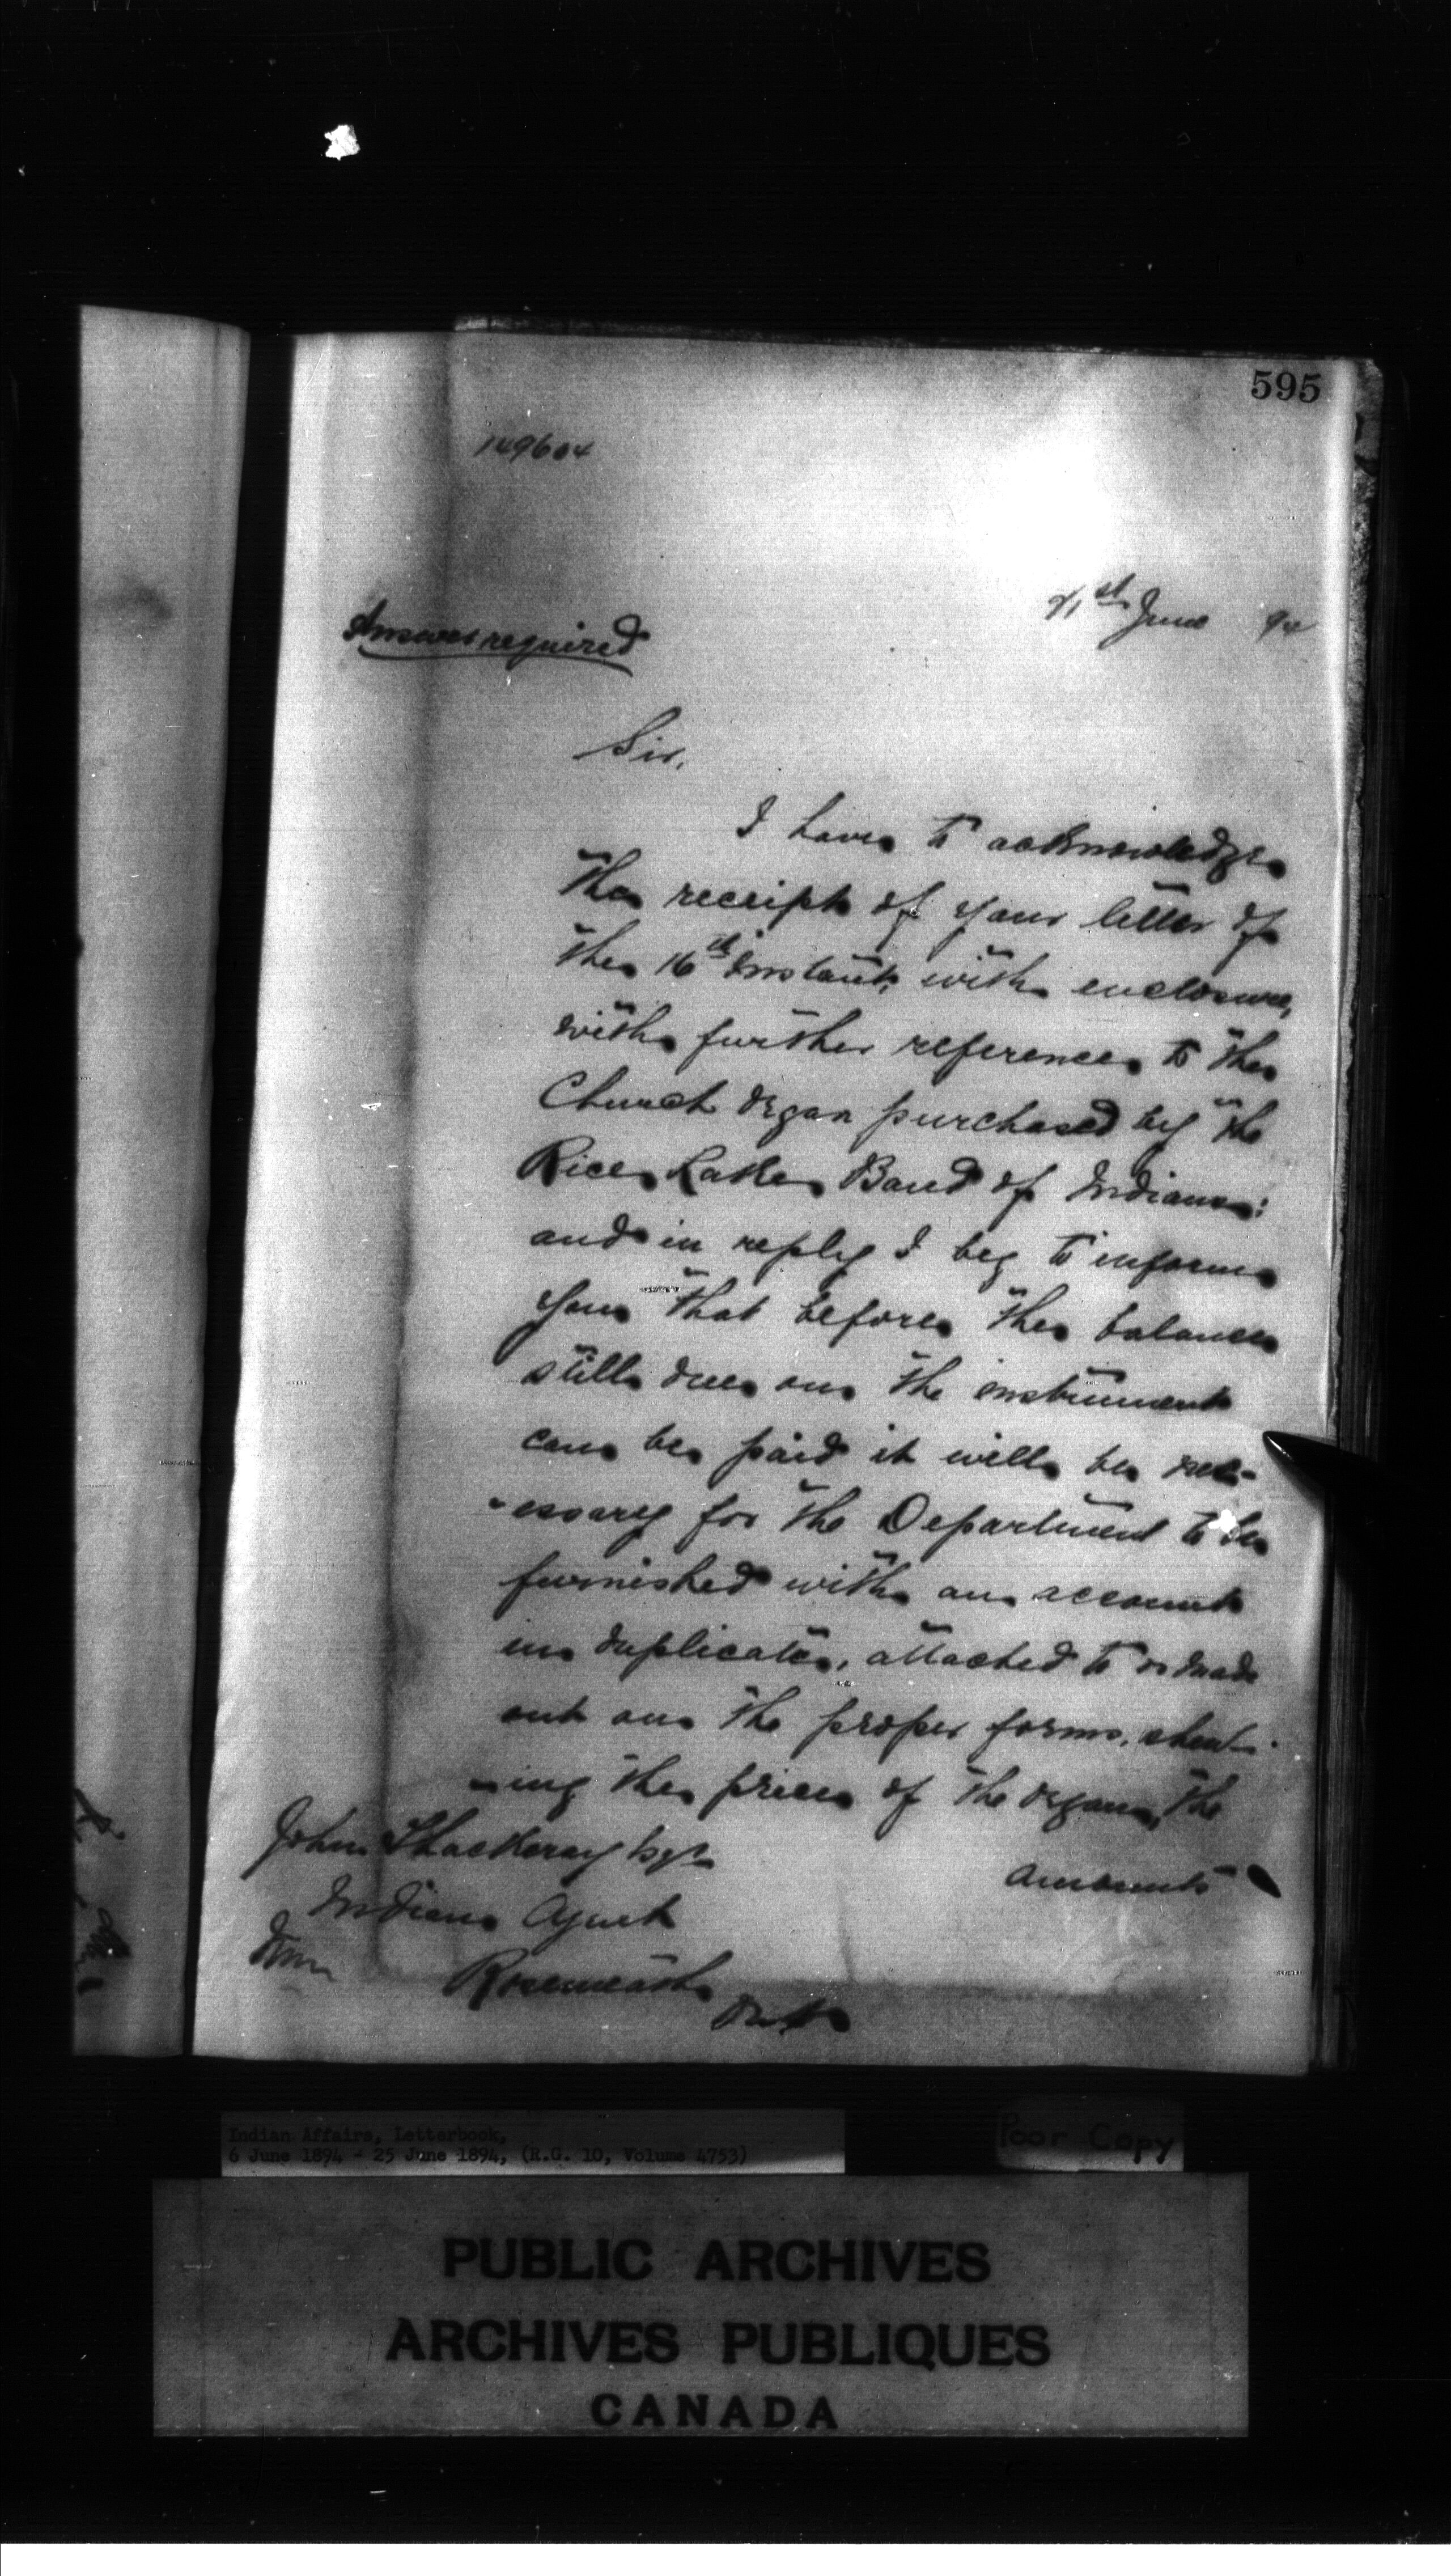 595
149604
21st June 94
Answer required
Sir,
I have to acknowledge
the receipt of your letter of
the 16th Instant, with enclosure,
with further reference to the
Church Organ purchased by the
Rice Lake Band of Indians:
and in reply I beg to inform
you that before the balance
still due on the instrument
can be paid it will be nec-
-essary for the Department to be
furnished with an account
in duplicate, attached to or made
out on the proper forms, show-
-ing the price of the organ, the
amounts
John Thackeray Esqr
Indian Agent
Roseneath
Ont
Indian Affairs, Letterbook,
6 June 1894 - 25 June 1894, (R.G. 10, Volume 4753)
Poor Copy
PUBLIC ARCHIVES
ARCHIVES PUBLIQUES
CANADA